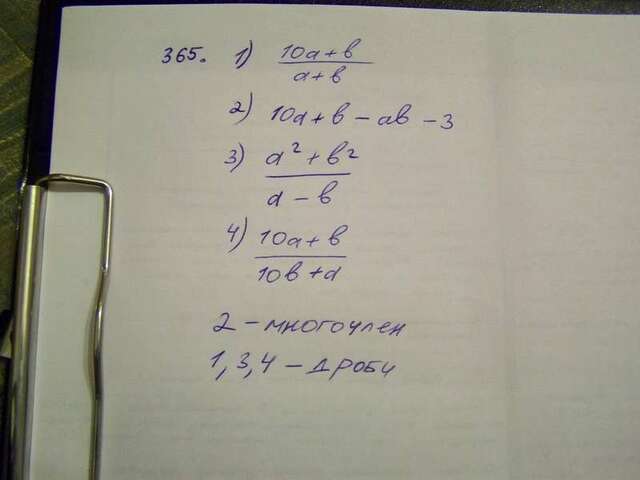 365. 1) 10a+b / a+b
2) 10a+b-ab-3
3) a²+b² / a-b
4) 10a+b / 10b+a
2 - многочлен
1,3,4 - дроби